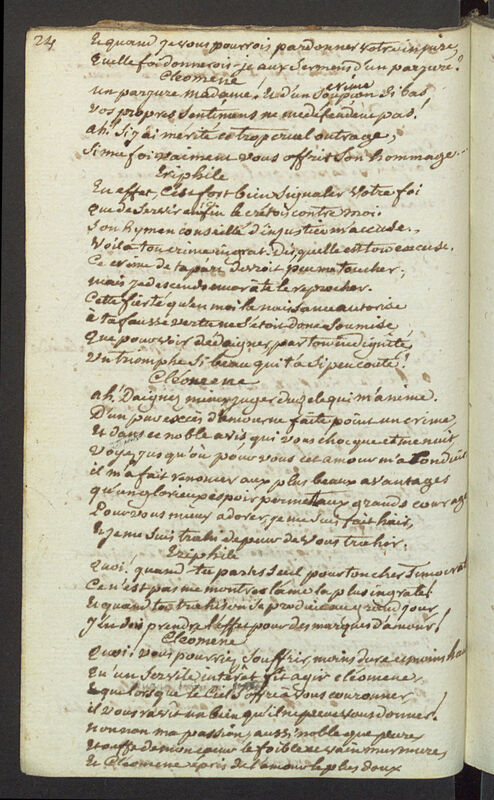 24
Et quand je vous pourrois pardonner votre injure,
Quelle foi donnerois-je aux sermens d'un parjure?
Cléomene
un parjure Madame! Et d'un crime si bas
vos propres sentimens ne me defendent pas!
ah! Si j'ai merité ce trop cruel outrage,
Si ma foi vaiment vous offrit son hommage..
Eriphile
En effet, C'est fort bien signaler votre foi
que de servir enfin le crétois contre moi.
Son hymen conseillé d'injustice m'accuse.
Voilà ton crime ingrat. Dis quelle est ton excuse.
Ce crime de ta part devroit peu me toucher;
mais je descends encor à te le reprocher.
Cette fierté qu'en moi la naissance autorise
à ta fausse vertu ne s'étoit donc soumise,
Que pour voir dédaigner par ton indignité
un triomphe si beau qui t'a si peu couté!
Cléomene
ah! Daignez mieux juger du zele qui m'anime.
D'un pur excès d'amour ne faite point un crime
Et dans ce noble avis qui vous choque et me nuit,
voyez jusqu'où pour vous cet amour m'a conduit
il m'a fait renoncer aux plus beaux avantages
qu'un glorieux espoir permet aux grands courage
Pour vous mieux adorer, je me suis fait haïr,
Et je me suis trahi de peur de vous trahir.
Eriphile
Quoi! quand tu parles seul pour toucher Timocrat
Ce n'est pas me montrer l'ame la plus ingrate!
Et quand ta trahison se produit au grand jour,
J'en dois prendre l'effet pour des marques d'amour!
Cléomene
Quoi! vous pourriez souffrir, moins dure et moins
qu'un servile intérêt fît agir cléomene,
Et que lorsque le Ciel s'offre à vous couronner
il vous ravît un bien qu'il ne peut vous donner!
non non ma passion, aussi noble que pure
etouffe de mon cœur le foible et vain murmure,
Et Cléomene épris de l'amour le plus doux